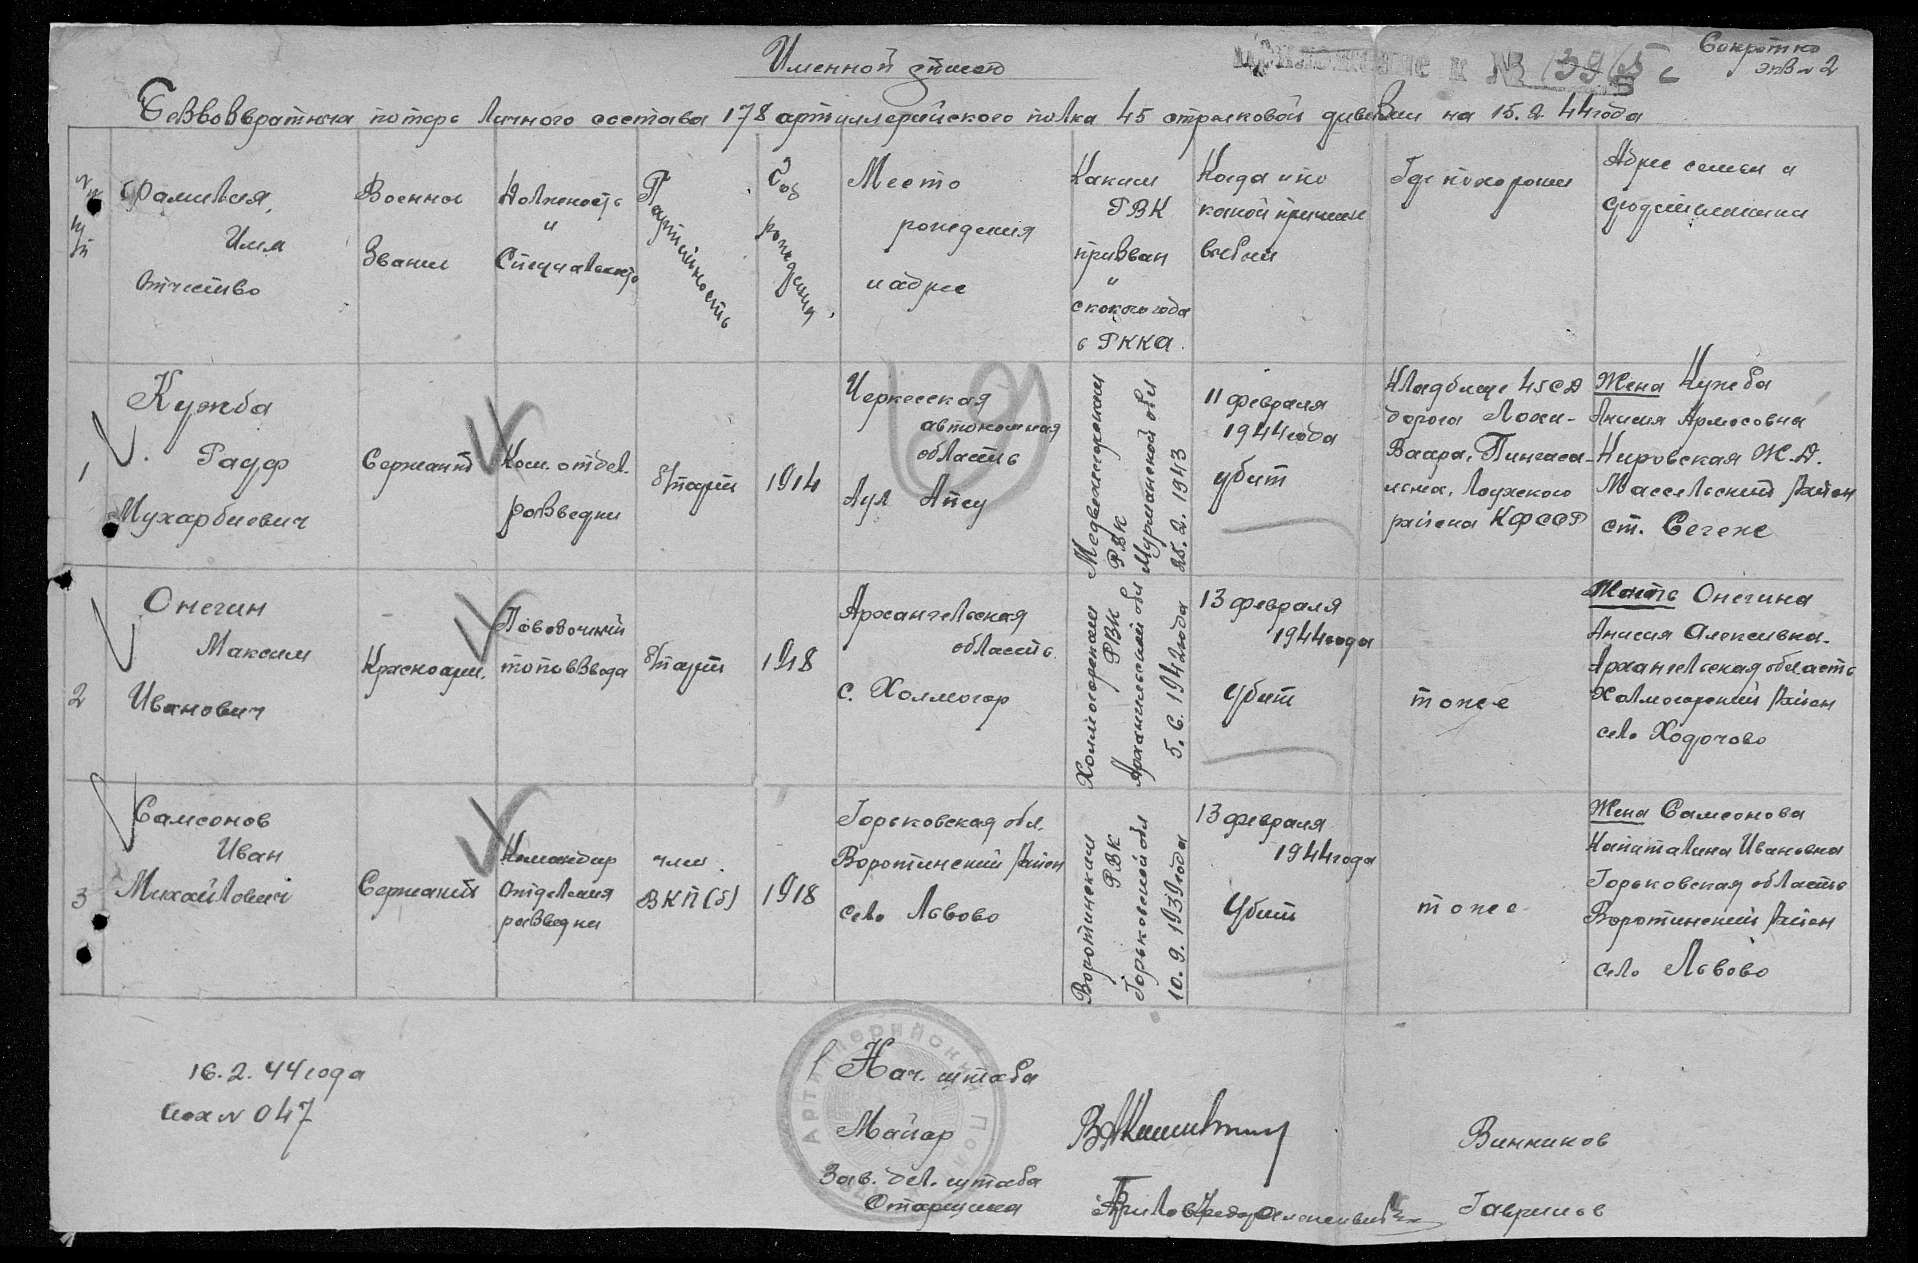 Именной список
Приложение к № 1396
Секретно
экз № 2
Безвозвратных потерь личного состава 178 артиллерийского полка 45 стрелковой дивизии на 15.2.44 года
Фамилия, Имя Отчество
Военное Звание
Должность и Специальность
Партийность
Год рождения
Место рождения и адрес
Каким РВК призван и с какого года в РККА.
Когда и по какой причине выбыл
Где похоронен
Адрес семьи и
1
Кужба
Рауф
Мухарбиевич
Сержант
Ком. отдел.
разведки
б/парт
1914
Черкесская
автономная
область
Аул Апсу
Медвежегорским
РВК
Мурманской обл
25.2.1943
11 февраля
1944 года
убит
Кладбище 45 СД
дорога Лохи-
Ваара, Пингаса-
лама, Лоухского
района КФССР
Жена Кужба
Кировская Ж.Д.
Массельский район
ст. Сегежа
2
Онегин
Максим
Иванович
Красноарм.
топовзвода
б/парт
1918
Архангельская
область
с. Холмогор
Холмогорским
РВК
Архангельской обл
5.6.1942 года
13 февраля
1944 года
убит
тоже
Мать Онегина
Анисия Алексивна.
Архангельская область
Холмогорский район
село Ходочово
3
Самсонов
Иван
Михайлович
Сержант
Командир
отделения
разведки
член
ВКП(б)
1918
Горьковская обл.
Воротинский район
село Львово
Воротинским
РВК
Горьковской обл
10.9.1939 года
13 февраля
1944 года
Убит
тоже
Жена Самсонова
Капиталина Ивановна
Горьковская область
Воротинский район
село Львово
16.2.44 года
Исх № 047
Нач. штаба
Майор
Винников
Зав. дел. штаба
Старшина
Гаврилов